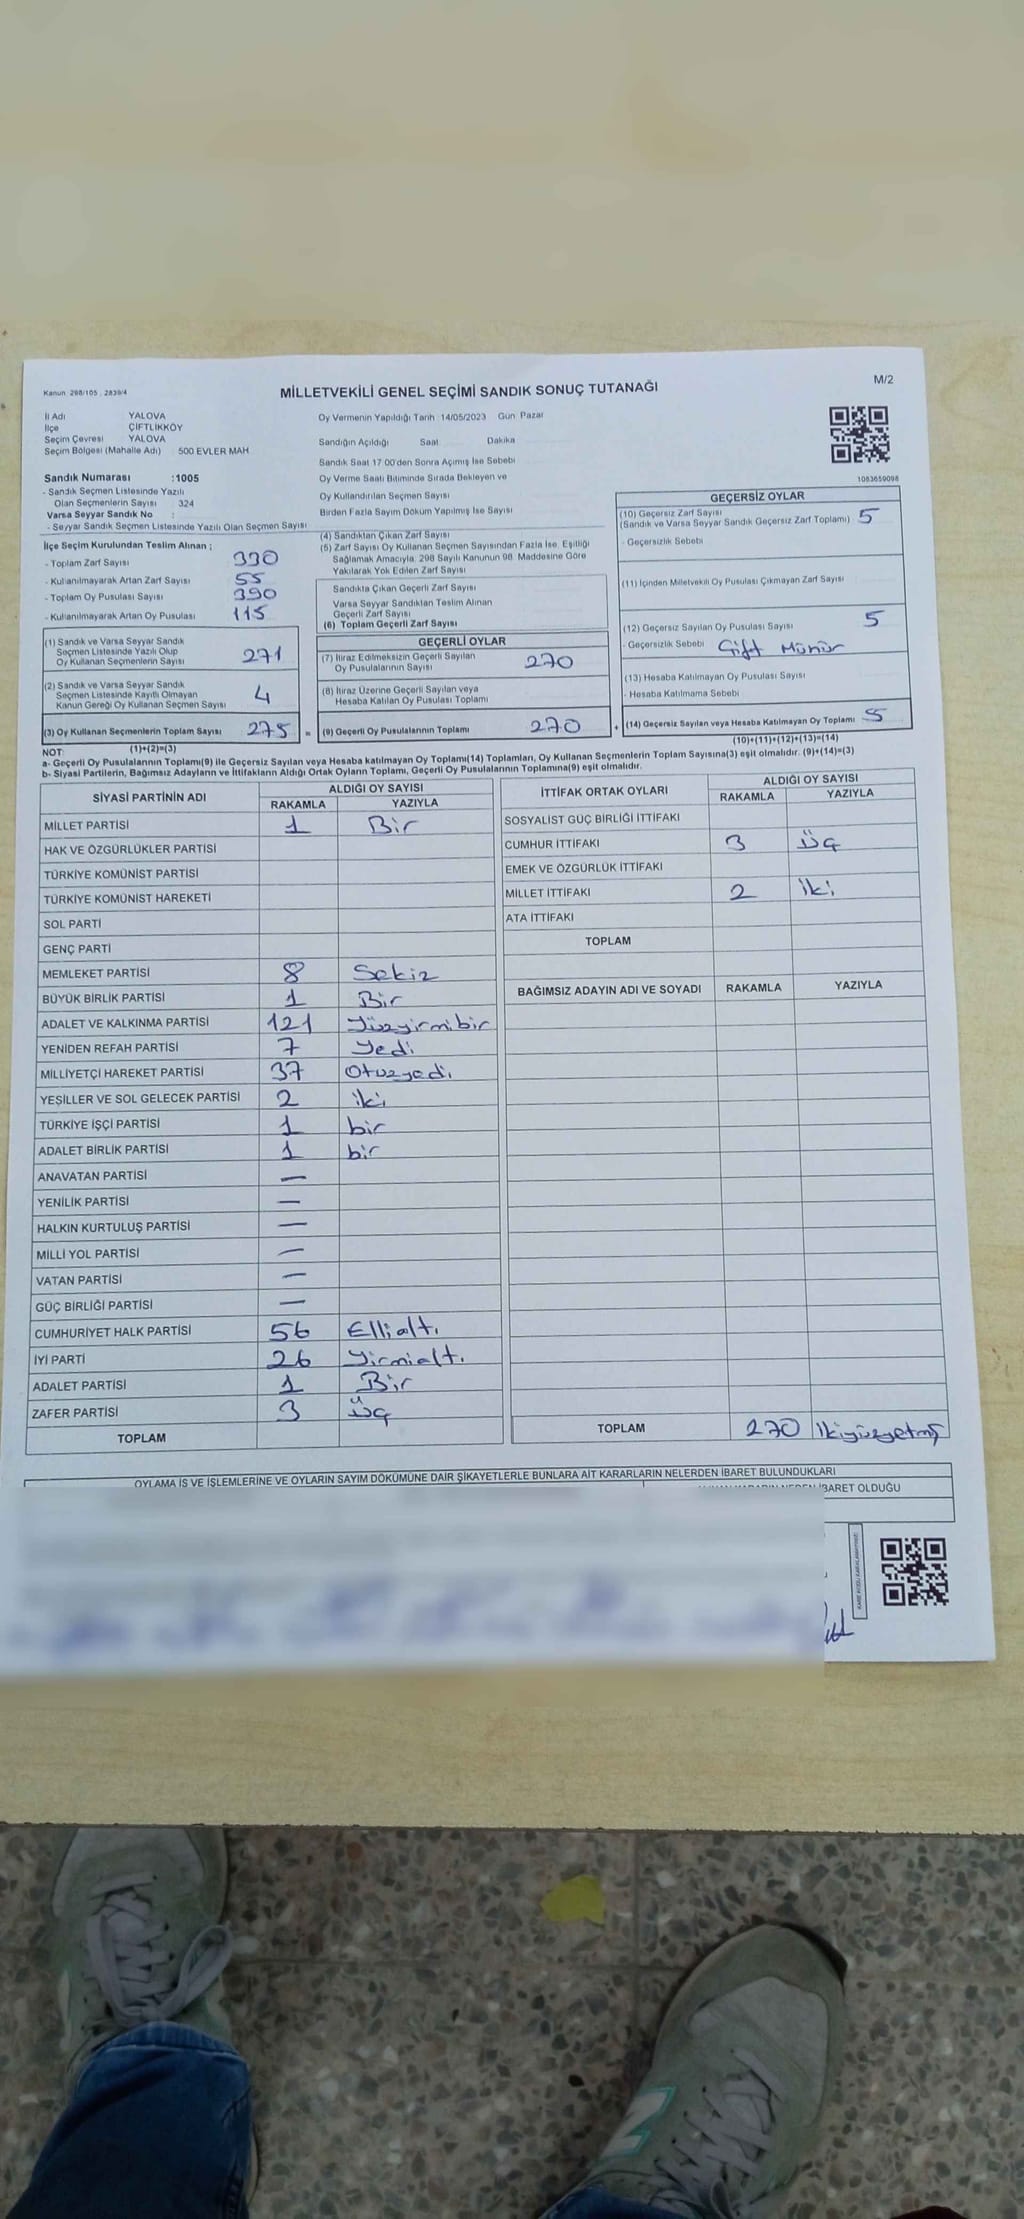 Kanun 298/105 , 2839/4
MİLLETVEKİLİ GENEL SEÇİMİ SANDIK SONUÇ TUTANAĞI
M/2
İl Adı YALOVA
İlçe ÇİFTLİKKÖY
Seçim Çevresi YALOVA
Seçim Bölgesi (Mahalle Adı) 500 EVLER MAH
Sandık Numarası :1005
- Sandık Seçmen Listesinde Yazılı
Olan Seçmenlerin Sayısı : 324
Varsa Seyyar Sandık No :
- Seyyar Sandık Seçmen Listesinde Yazılı Olan Seçmen Sayısı
Oy Vermenin Yapıldığı Tarih 14/05/2023 Gün Pazar
Sandığın Açıldığı Saat Dakika
Sandık Saat 17 00'den Sonra Açımış İse Sebebi
Oy Verme Saati Bitiminde Sırada Bekleyen ve
Oy Kullandırılan Seçmen Sayısı
Birden Fazla Sayım Döküm Yapılmış İse Sayısı
1083659098
İlçe Seçim Kurulundan Teslim Alınan ;
- Toplam Zarf Sayısı 330
- Kullanılmayarak Artan Zarf Sayısı 55
- Toplam Oy Pusulası Sayısı 390
- Kullanılmayarak Artan Oy Pusulası 115
(1) Sandık ve Varsa Seyyar Sandık
Seçmen Listesinde Yazılı Olup
Oy Kullanan Seçmenlerin Sayısı 271
(2) Sandık ve Varsa Seyyar Sandık
Seçmen Listesinde Kayıtlı Olmayan
Kanun Gereği Oy Kullanan Seçmen Sayısı 4
(3) Oy Kullanan Seçmenlerin Toplam Sayısı 275 =
(1)+(2)=(3)
(4) Sandıktan Çıkan Zarf Sayısı
(5) Zarf Sayısı Oy Kullanan Seçmen Sayısından Fazla İse, Eşitliği
Sağlamak Amacıyla, 298 Sayılı Kanunun 98. Maddesine Göre
Yakılarak Yok Edilen Zarf Sayısı
Sandıkta Çıkan Geçerli Zarf Sayısı
Varsa Seyyar Sandıktan Teslim Alınan
Geçerli Zarf Sayısı
(6) Toplam Geçerli Zarf Sayısı
GEÇERLİ OYLAR
(7) İtiraz Edilmeksizin Geçerli Sayılan
Oy Pusulalarının Sayısı 270
(8) İtiraz Üzerine Geçerli Sayılan veya
Hesaba Katılan Oy Pusulası Toplamı
(9) Geçerli Oy Pusulalarının Toplamı 270 +
GEÇERSİZ OYLAR
(10) Geçersiz Zarf Sayısı
(Sandık ve Varsa Seyyar Sandık Geçersiz Zarf Toplamı) 5
- Geçersizlik Sebebi
(11) İçinden Milletvekili Oy Pusulası Çıkmayan Zarf Sayısı
(12) Geçersiz Sayılan Oy Pusulası Sayısı 5
- Geçersizlik Sebebi Çift Mühür
(13) Hesaba Katılmayan Oy Pusulası Sayısı
- Hesaba Katılmama Sebebi
(14) Geçersiz Sayılan veya Hesaba Katılmayan Oy Toplamı 5
(10)+(11)+(12)+(13)=(14)
NOT:
a- Geçerli Oy Pusulalarının Toplamı(9) ile Geçersiz Sayılan veya Hesaba katılmayan Oy Toplamı(14) Toplamları, Oy Kullanan Seçmenlerin Toplam Sayısına(3) eşit olmalıdır. (9)+(14)=(3)
b- Siyasi Partilerin, Bağımsız Adayların ve İttifakların Aldığı Ortak Oyların Toplamı, Geçerli Oy Pusulalarının Toplamına(9) eşit olmalıdır.
SİYASİ PARTİNİN ADI ALDIĞI OY SAYISI
RAKAMLA YAZIYLA
MİLLET PARTİSİ 1 Bir
HAK VE ÖZGÜRLÜKLER PARTİSİ
TÜRKİYE KOMÜNİST PARTİSİ
TÜRKİYE KOMÜNİST HAREKETİ
SOL PARTİ
GENÇ PARTİ
MEMLEKET PARTİSİ 8 Sekiz
BÜYÜK BİRLİK PARTİSİ 1 Bir
ADALET VE KALKINMA PARTİSİ 121 Yüzyirmibir
YENİDEN REFAH PARTİSİ 7 Yedi
MİLLİYETÇİ HAREKET PARTİSİ 37 Otuzyedi
YEŞİLLER VE SOL GELECEK PARTİSİ 2 iki
TÜRKİYE İŞÇİ PARTİSİ 1 bir
ADALET BİRLİK PARTİSİ 1 bir
ANAVATAN PARTİSİ —
YENİLİK PARTİSİ —
HALKIN KURTULUŞ PARTİSİ —
MİLLİ YOL PARTİSİ —
VATAN PARTİSİ —
GÜÇ BİRLİĞİ PARTİSİ —
CUMHURİYET HALK PARTİSİ 56 Ellialtı
İYİ PARTİ 26 Yirmialtı
ADALET PARTİSİ 1 Bir
ZAFER PARTİSİ 3 Üç
TOPLAM
İTTİFAK ORTAK OYLARI ALDIĞI OY SAYISI
RAKAMLA YAZIYLA
SOSYALİST GÜÇ BİRLİĞİ İTTİFAKI
CUMHUR İTTİFAKI 3 Üç
EMEK VE ÖZGÜRLÜK İTTİFAKI
MİLLET İTTİFAKI 2 iki
ATA İTTİFAKI
TOPLAM
BAĞIMSIZ ADAYIN ADI VE SOYADI RAKAMLA YAZIYLA
TOPLAM 270 İkiyüzyetmiş
OYLAMA İŞ VE İŞLEMLERİNE VE OYLARIN SAYIM DÖKÜMÜNE DAİR ŞİKAYETLERLE BUNLARA AİT KARARLARIN NELERDEN İBARET BULUNDUKLARI
İBARET OLDUĞU